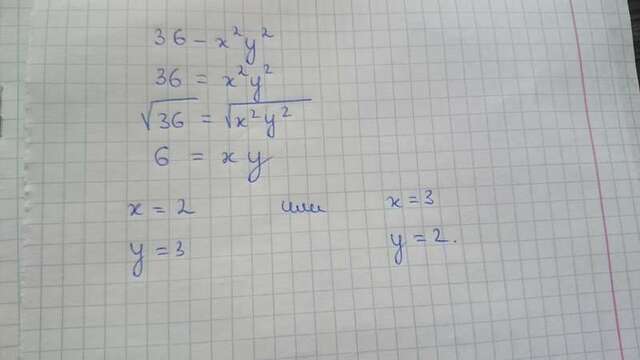 36 - x²y²
36 = x²y²
√36 = √x²y²
6 = xy
x = 2 или x = 3
y = 3 y = 2.